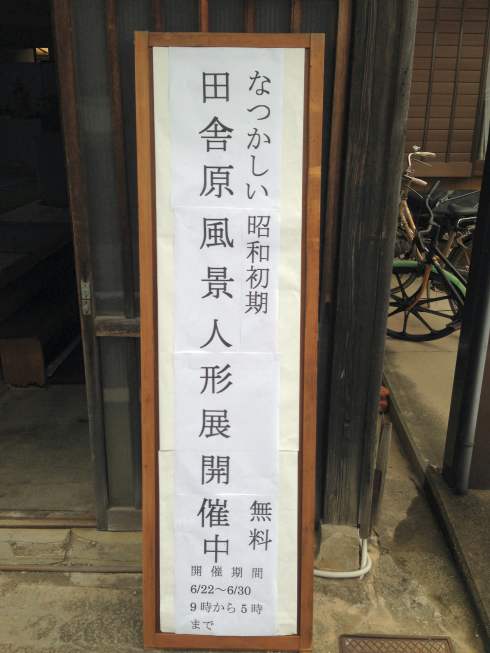 なつかしい 昭和初期
田舎原風景人形展開催中
無料
開催期間
6/22～6/30
9時から5時
まで